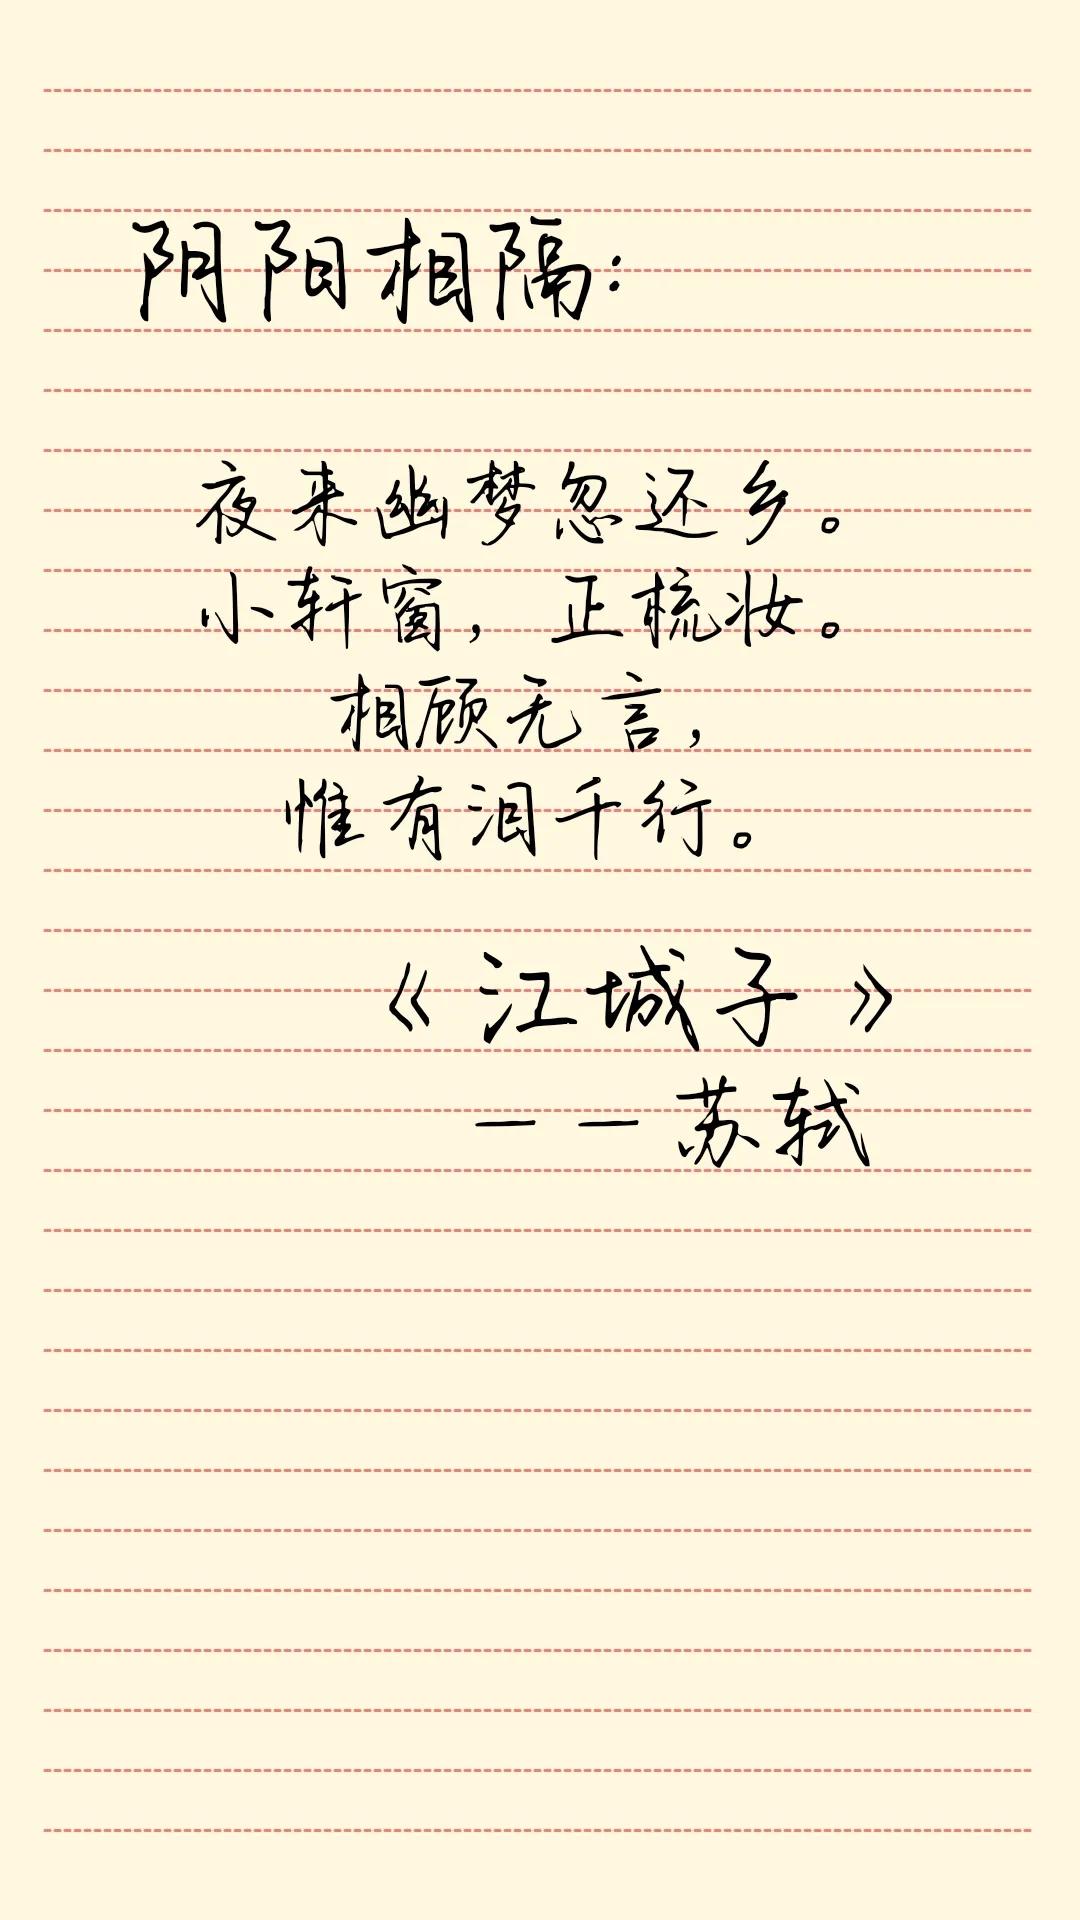 阴阳相隔：
夜来幽梦忽还乡。
小轩窗，正梳妆。
相顾无言，
惟有泪千行。
《江城子》
——苏轼